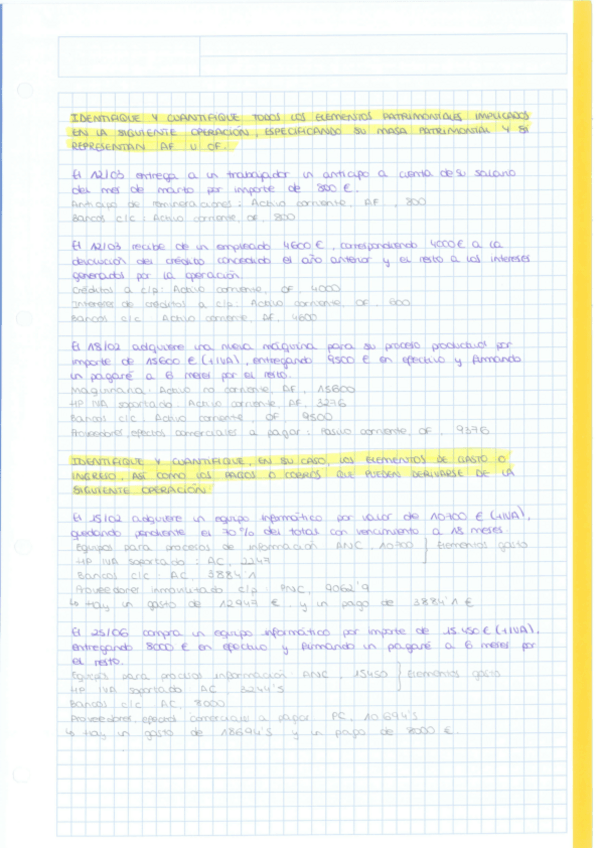 IDENTIFIQUE Y CUANTIFIQUE TODOS LOS ELEMENTOS PATRIMONIALES IMPLICADOS
EN LA SIGUIENTE OPERACIÓN, ESPECIFICANDO SU MASA PATRIMONIAL Y SI
REPRESENTAN AF U OF.
El 12/03 entrega a un trabajador un anticipo a cuenta de su salario
del mes de marzo por importe de 800 €.
Anticipo de remuneraciones: Activo corriente, AF, 800
Bancos c/c: Activo corriente, OF, 800
El 12/03 recibe de un empleado 4600 €, correspondiendo 4000 € a la
devolución del crédito concedido el año anterior y el resto a los intereses
generados por la operación.
Créditos a c/p: Activo corriente, OF, 4000
Intereses de créditos a c/p: Activo corriente, OF, 600
Bancos c/c Activo corriente, AF, 4600
El 18/02 adquiere una nueva máquina para su proceso productivo por
importe de 15600 € (+IVA), entregando 9500 € en efectivo y firmando
un pagaré a 6 meses por el resto.
Maquinaria: Activo no corriente, AF, 15600
HP IVA soportado: Activo corriente, AF, 3276
Bancos c/c: Activo corriente, OF 9500
Proveedores, efectos comerciales a pagar: Pasivo corriente, OF, 9376
IDENTIFIQUE Y CUANTIFIQUE, EN SU CASO, LOS ELEMENTOS DE GASTO O
INGRESO, ASÍ COMO LOS PAGOS O COBROS QUE PUEDEN DERIVARSE DE LA
SIGUIENTE OPERACIÓN
El 15/02 adquiere un equipo informático por valor de 10700 € (+IVA),
quedando pendiente el 70% del total con vencimiento a 18 meses
Equipos para procesos de información ANC, 10700 } Elementos gasto
HP IVA soportado: AC, 2247
Bancos c/c: AC, 3884'1
Proveedores inmovilizado c/p PNC, 9062'9
↳ Hay un gasto de 12947 € y un pago de 3884'1 €
El 25/06 compra un equipo informático por importe de 15.450 € (+IVA),
entregando 8000 € en efectivo y firmando un pagaré a 6 meses por
el resto.
Equipos para procesos información ANC, 15450 } Elementos gasto
HP IVA soportado AC, 3244'5
Bancos c/c AC, 8000
Proveedores, efectos comerciales a pagar PC, 10694'5
↳ Hay un gasto de 18694'5 y un pago de 8000 €